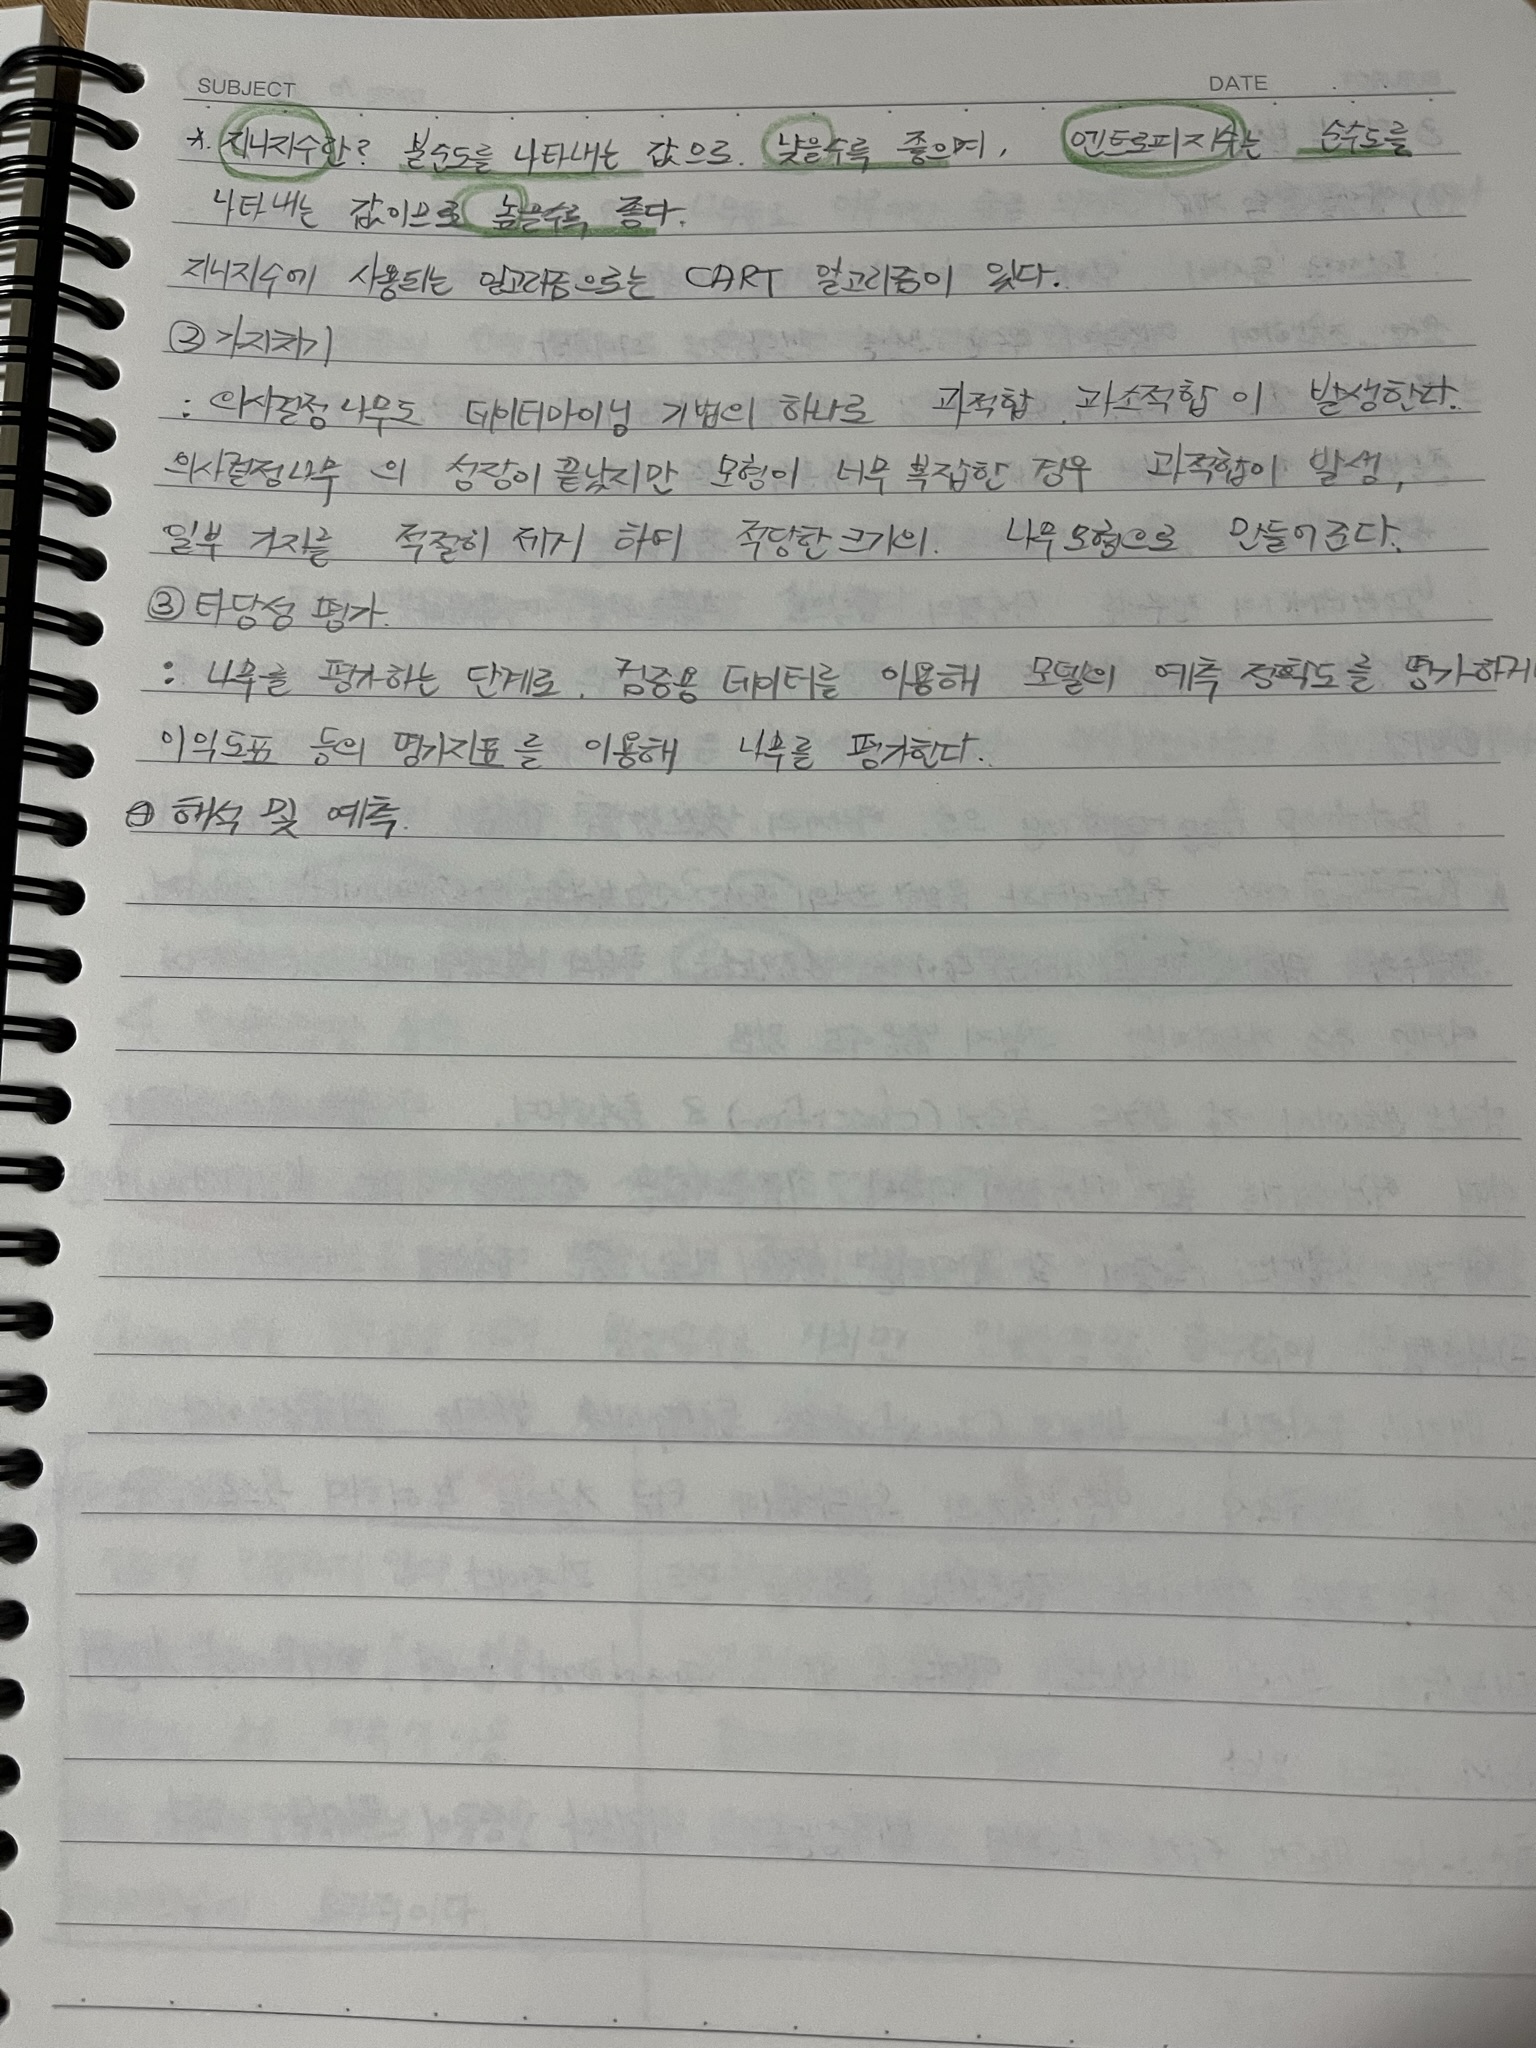 SUBJECT
DATE
*. 지니지수란? 불순도를 나타내는 값으로. 낮을수록 좋으며, 엔트로피지수는 순수도를
나타내는 값이므로 높을수록 좋다.
지니지수에 사용되는 알고리즘으로는 CART 알고리즘이 있다.
② 가지치기
: 의사결정나무도 데이터마이닝 기법의 하나로 과적합, 과소적합이 발생한다.
의사결정나무의 성장이 끝났지만 모형이 너무 복잡한 경우 과적합이 발생,
일부 가지를 적절히 제거 하여 적당한 크기의. 나무모형으로 만들어준다.
③ 타당성 평가.
: 나무를 평가하는 단계로. 검증용 데이터를 이용해 모델의 예측 정확도를 평가하거나
이익도표 등의 평가지표를 이용해 나무를 평가한다.
④ 해석 및 예측.